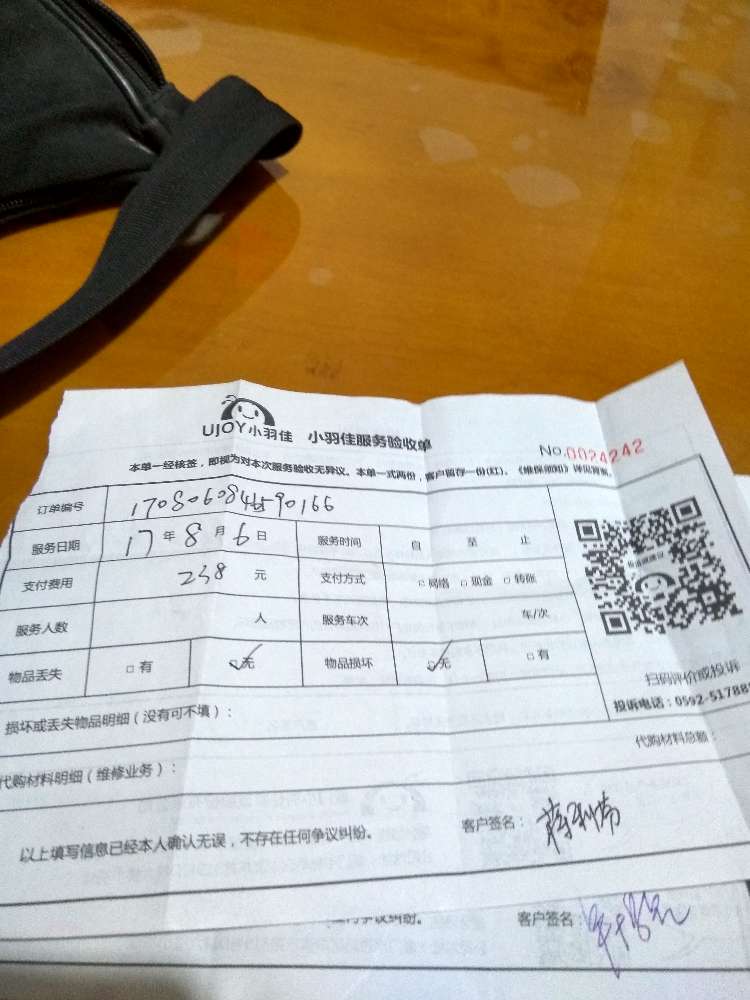 UJOY小羽佳 小羽佳服务验收单
No.0024242
本单一经核签，即视为对本次服务验收无异议。本单一式两份，客户留存一份(红)。《维保须知》详见背面。
订单编号
服务日期 17年8月6日 服务时间 自 至 止
支付费用 238 元 支付方式 网络 现金 转账
服务人数 人 服务车次 车/次
物品丢失 有 无 物品损坏 无 有
扫码评价或投诉
投诉电话：0592-51788
损坏或丢失物品明细（没有可不填）：
代购材料明细（维修业务）： 代购材料总额：
以上填写信息已经本人确认无误，不存在任何争议纠纷。 客户签名：
争议纠纷。 客户签名：